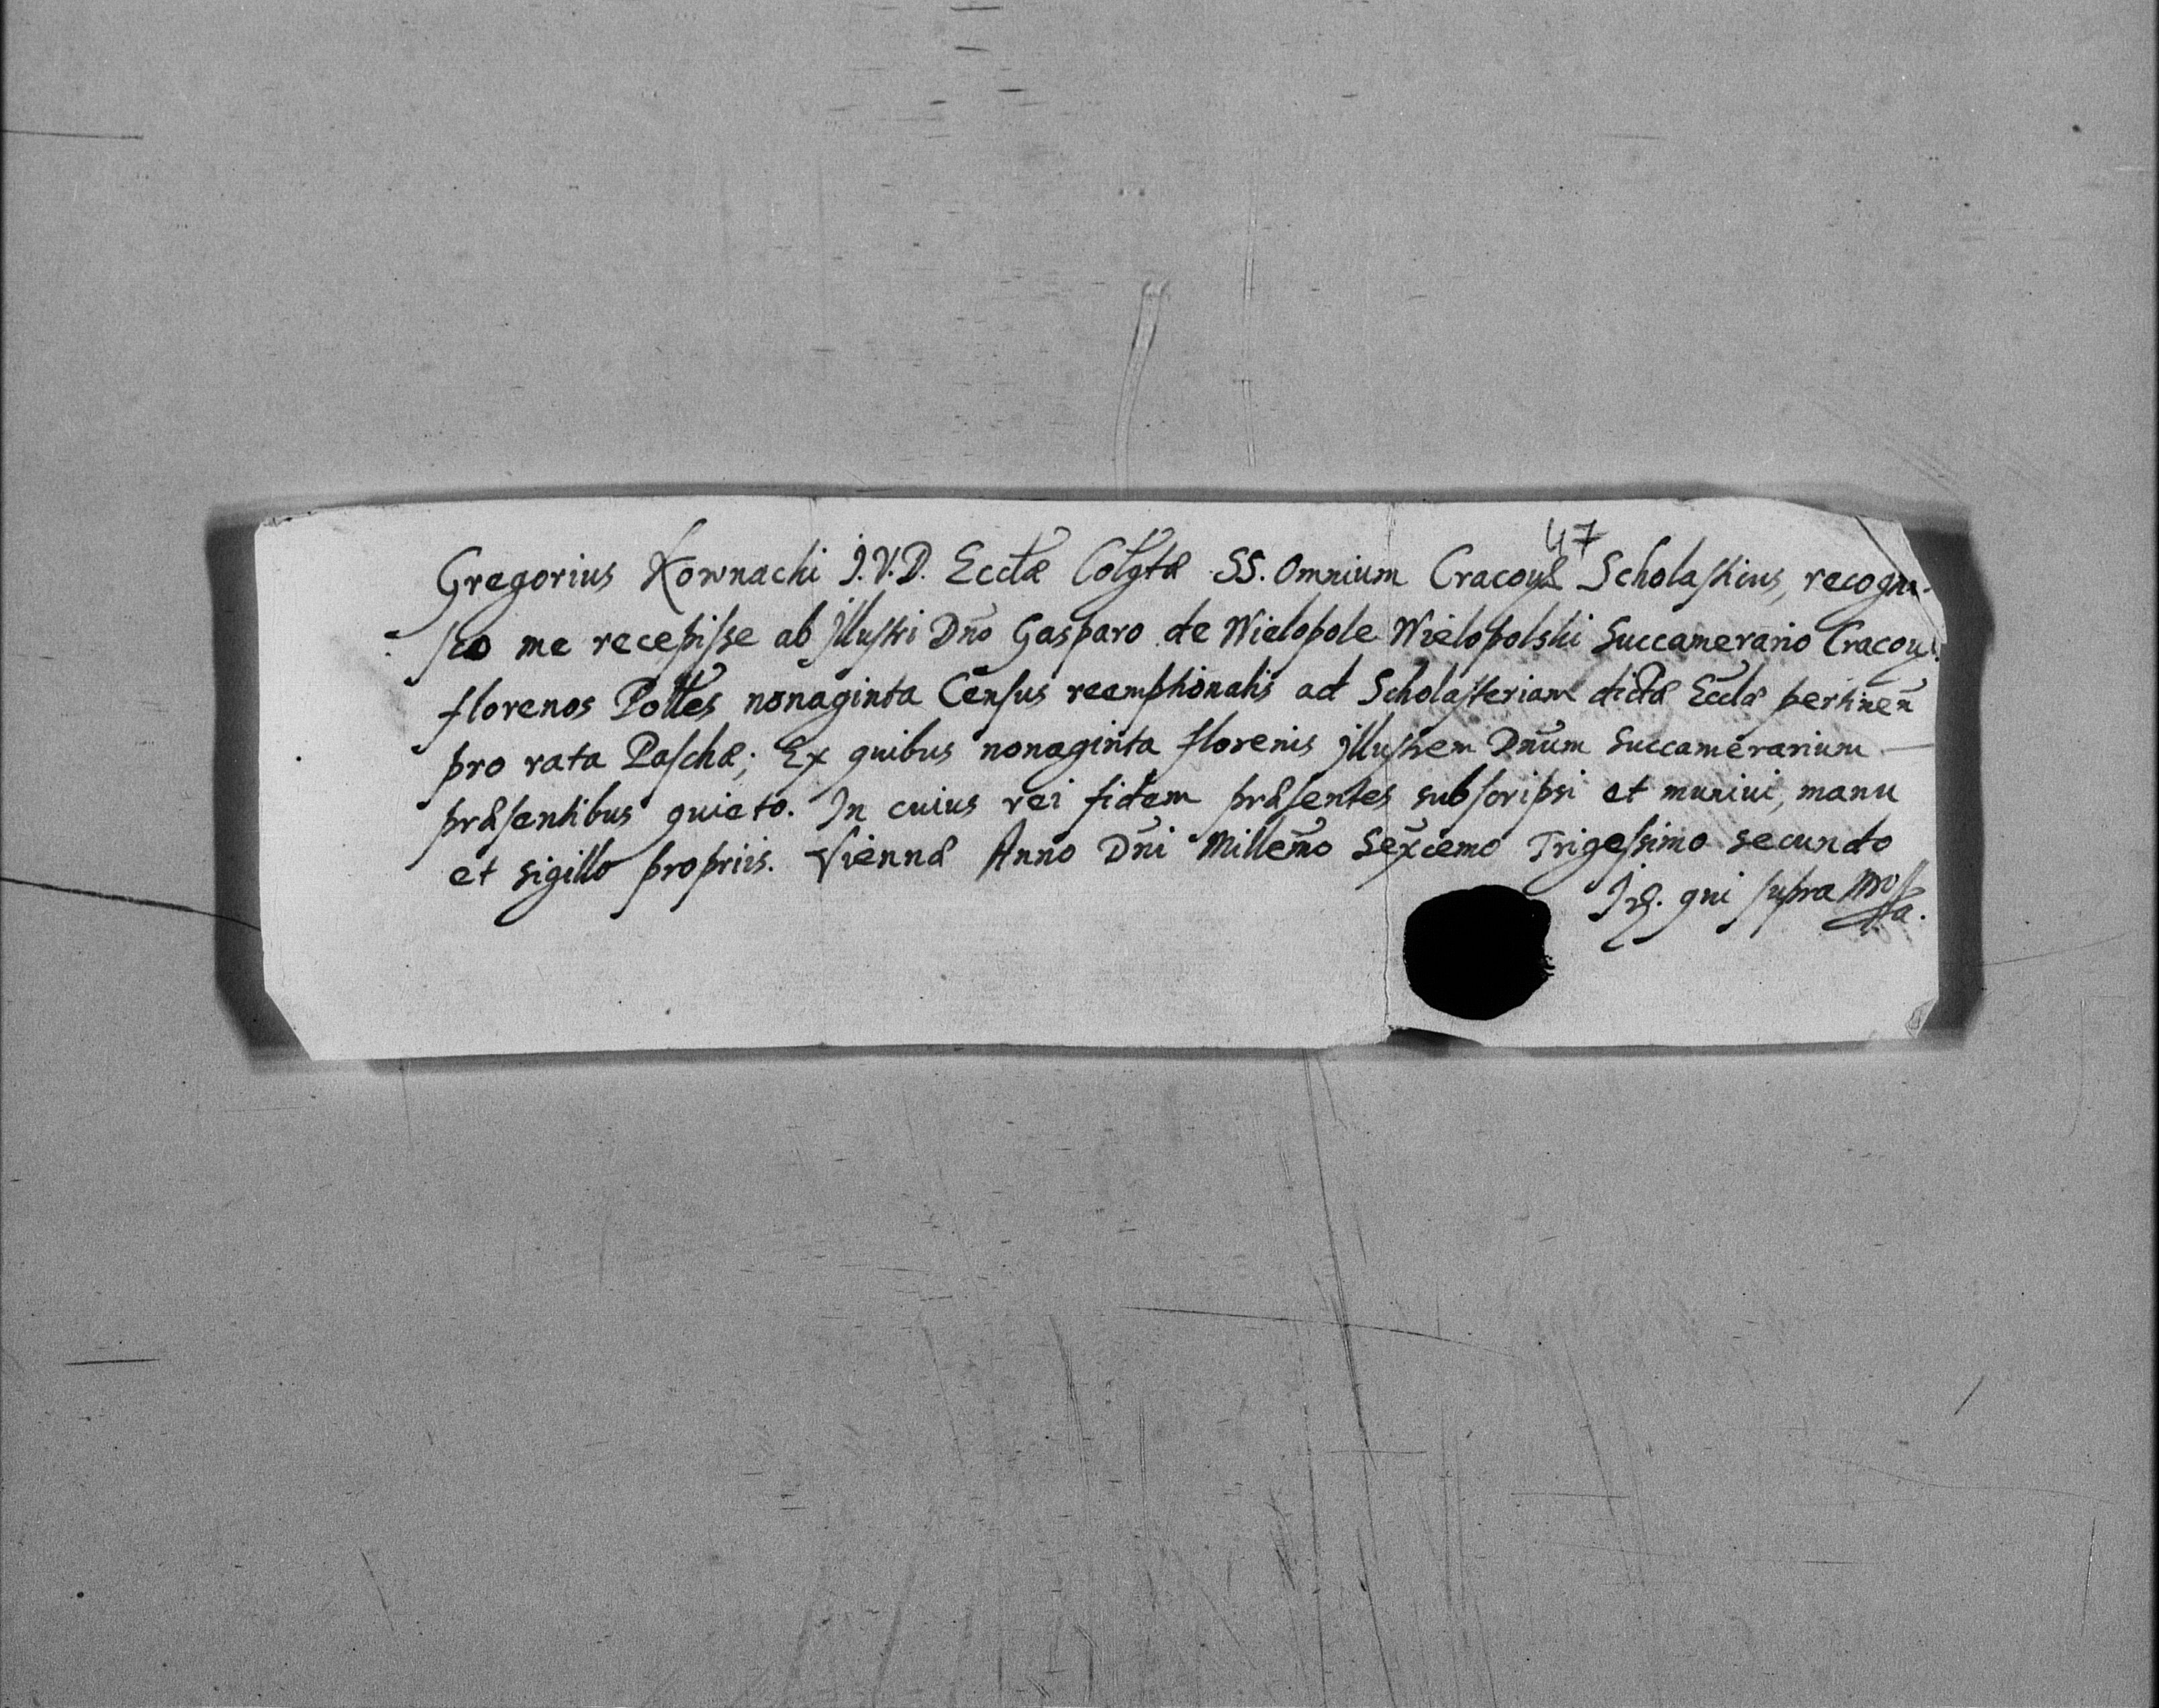 47
Gregorius Kownacki J.V.D. Ecclæ Colgtæ SS. Omnium Cracoviæ Scholasticus, recogno-
sco me recepisse ab Jllustri Dno Gasparo de Wielopole Wielopolski Succamerario Cracou:
florenos Polles nonaginta Census reemptionalis ad Scholasteriam dictæ Ecclæ pertinen
pro rata Paschæ; Ex quibus nonaginta florenis Jllustrem Dnum Succamerarium
præsentibus quieto. In cuius rei fidem præsentes subscripsi et muniui, manu
et sigillo propriis. Viennæ Anno Dni Millemo Sexcemo Trigessimo secundo
Id. qui supra